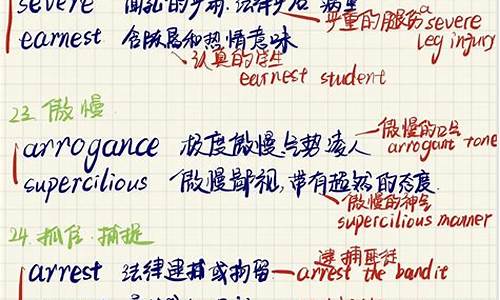 severe
严重的腿伤 a severe leg injury
earnest 含
和热情意味
认真的学生
earnest student
23. 傲慢
arrogance 极度傲慢.气势凌人
傲慢的口气
arrogant tone
supercilious 傲慢鄙视,带有超然的态度.
傲慢的神气
supercilious manner
24. 抓住.捕捉
arrest 法律逮捕或拘留
逮捕匪徒
arrest the bandit